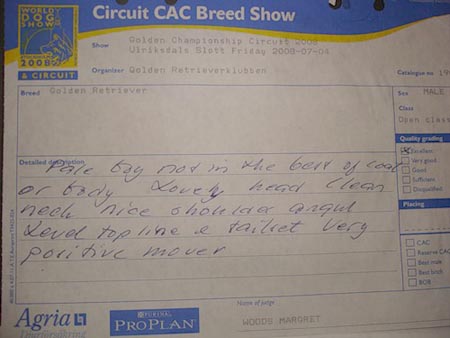 WORLD
DOG
SHOW
2008
& CIRCUIT
Circuit CAC Breed Show
Show
Golden Championship Circuit 2008
Ulriksdals Slott Friday 2008-07-04
Organizer
Golden Retrieverklubben
Catalogue no
19
Breed
Golden Retriever
Sex
MALE
Class
Open class
Quality grading
Excellent
Very good
Good
Sufficient
Disqualified
Detailed description
Pale boy not in the best of coat
or body Lovely head clean
neck nice shoulder angul
Level topline & tailset very
positive mover
Placing
CAC
Reserve CAC
Best male
Best bitch
BOB
Agria
Djurförsäkring
PURINA
PRO PLAN
Name of judge
WOODS MARGRET